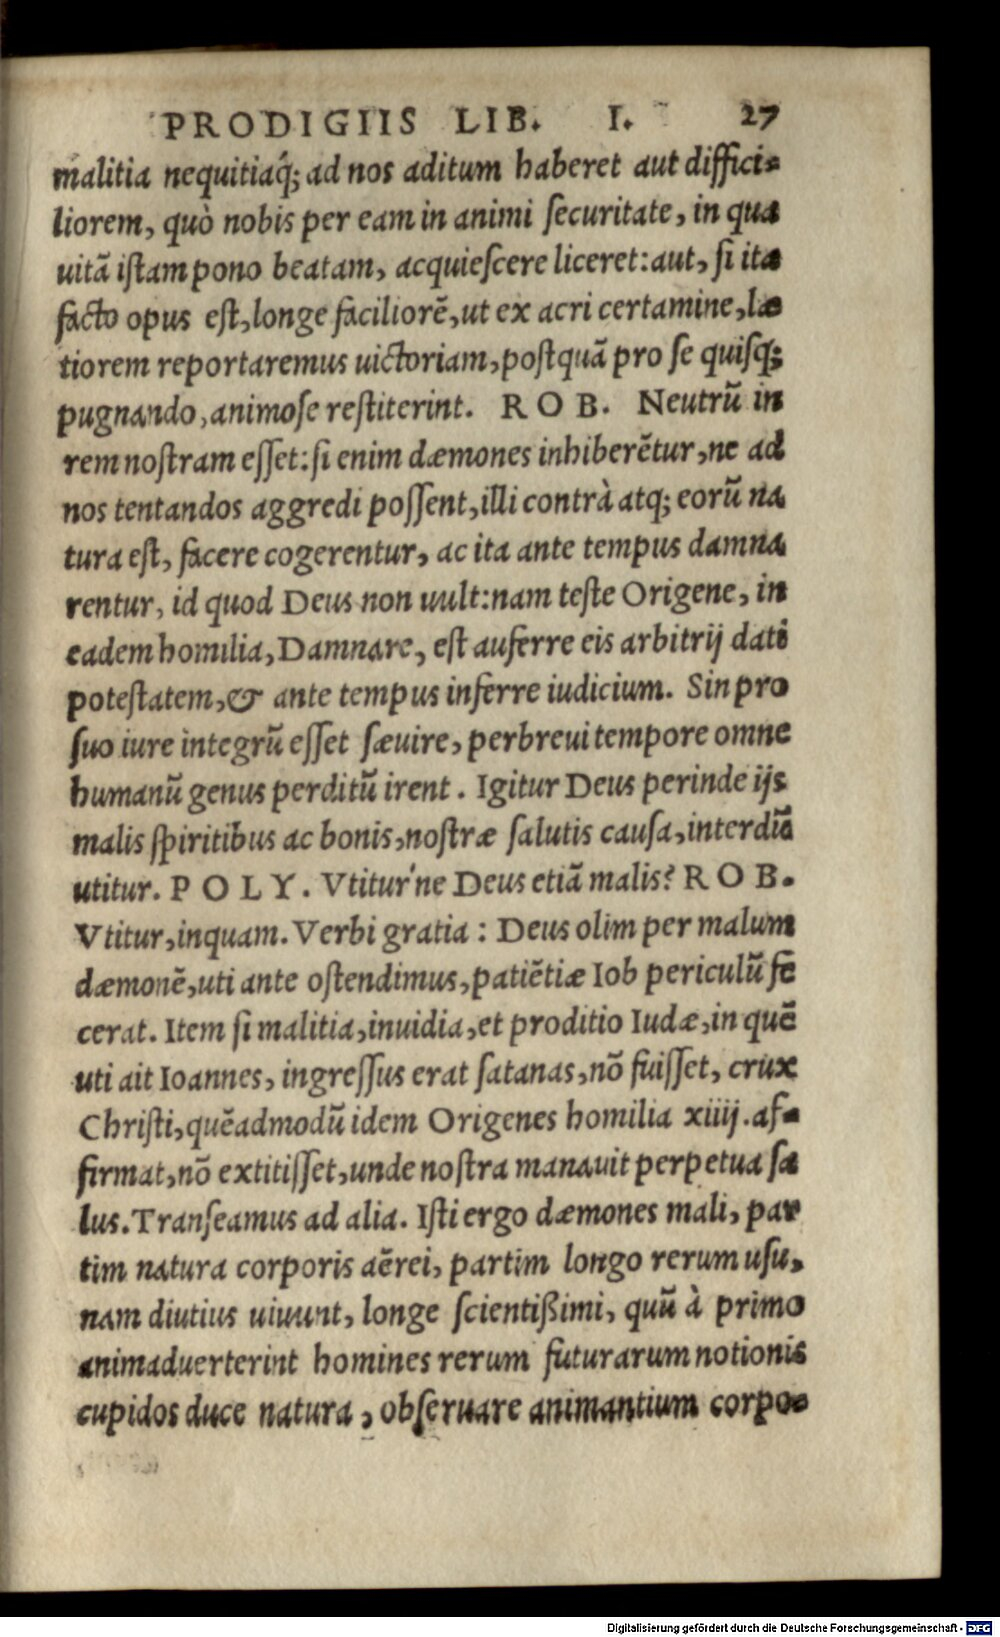 PRODIGIIS LIB. I. 27
malitia nequitiaq́; ad nos aditum haberet aut diffici-
liorem, quò nobis per eam in animi ſecuritate, in qua
uitã iſtam pono beatam, acquieſcere liceret: aut, ſi ita
facto opus eſt, longe faciliorẽ, ut ex acri certamine, læ
tiorem reportaremus uictoriam, poſtquã pro ſe quiſq;
pugnando, animoſe reſtiterint. ROB. Neutrũ in
rem noſtram eſſet: ſi enim dæmones inhiberẽtur, ne ad
nos tentandos aggredi poſſent, illi contrà atq; eorũ na
tura eſt, facere cogerentur, ac ita ante tempus damna
rentur, id quod Deus non uult: nam teſte Origene, in
eadem homilia, Damnare, eſt auferre eis arbitrij dati
poteſtatem, & ante tempus inferre iudicium. Sin pro
ſuo iure integrũ eſſet ſæuire, perbreui tempore omne
humanũ genus perditũ irent. Igitur Deus perinde ijs
malis ſpiritibus ac bonis, noſtræ ſalutis cauſa, interdiũ
utitur. POLY. Vtitur'ne Deus etiã malis? ROB.
Vtitur, inquam. Verbi gratia: Deus olim per malum
dæmonẽ, uti ante oſtendimus, patiẽtiæ Iob periculũ fe
cerat. Item ſi malitia, inuidia, et proditio Iudæ, in quẽ
uti ait Ioannes, ingreſſus erat ſatanas, nõ fuiſſet, crux
Chriſti, quẽadmodũ idem Origenes homilia xiiij. af-
firmat, nõ extitiſſet, unde noſtra manauit perpetua ſa
lus. Tranſeamus ad alia. Iſti ergo dæmones mali, par
tim natura corporis aẽrei, partim longo rerum uſu,
nam diutius uiuunt, longe ſcientißimi, quũ à primo
animaduerterint homines rerum futurarum notionis
cupidos duce natura, obſeruare animantium corpo-
Digitalisierung gefördert durch die Deutsche Forschungsgemeinschaft - DFG